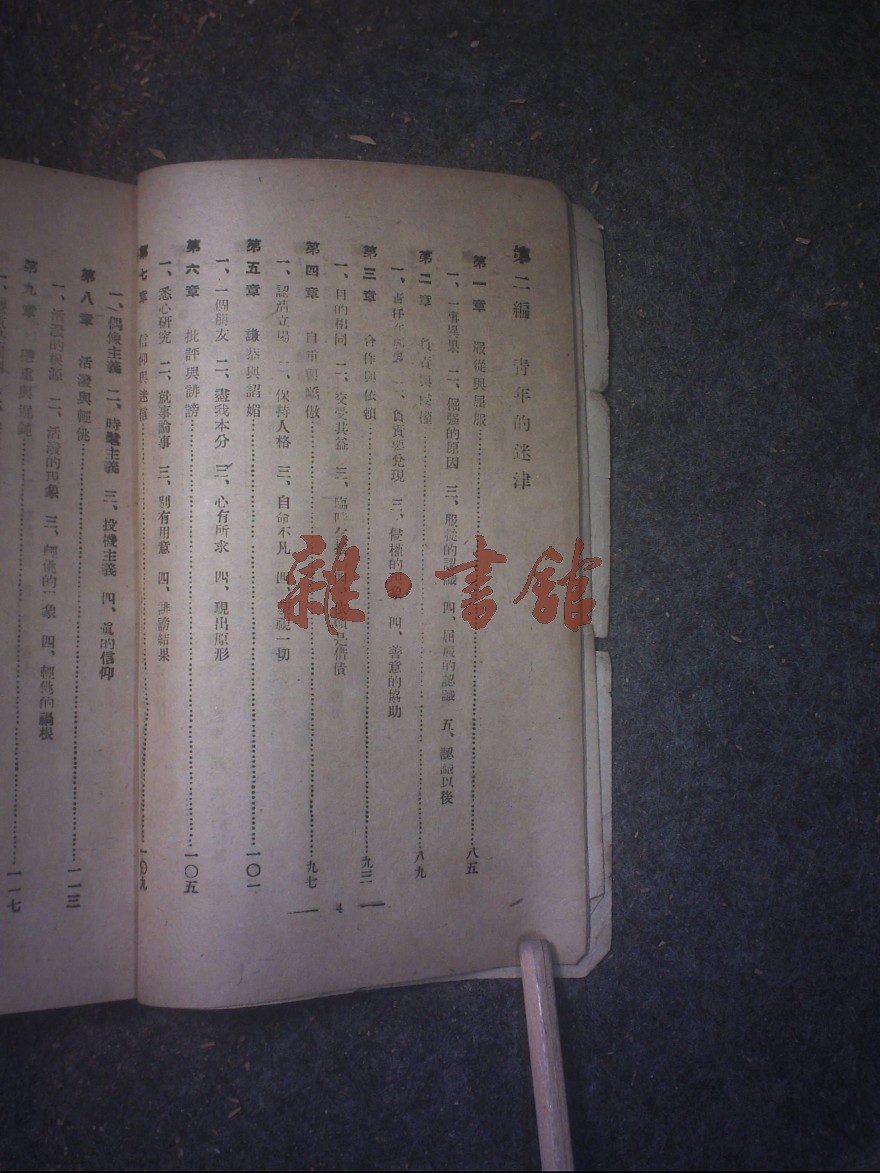 第二編 青年的迷津
第一章 服從與屈服 八五
一、一事異果 二、倔强的原因 三、服從的認識 四、屈服的認識 五、認識以後
第二章 負責與侵權 八九
二、負責要兌現 三、侵權的現象 四、善意的協助
第三章 合作與依賴 九三
一、目的相同 二、交受其益 三、臨時 是借債
第四章 自重與驕傲 九七
一、認清立場 二、保持人格 三、自命不凡 四、 視一切
第五章 謙恭與諂媚 一〇一
一、一個朋友 二、盡我本分 三、心有所求 四、現出原形
第六章 批評與誹謗 一〇五
一、悉心研究 二、就事論事 三、別有用意 四、誹謗結果
第七章 信仰與迷 一〇九
4
一、偶像主義 二、時髦主義 三、投機主義 四、眞的信仰
第八章 活潑與輕佻 一一三
一、活潑的根源 二、活潑的現象 三、輕佻的現象 四、輕佻的禍根
第九章 一一七
雜·書館